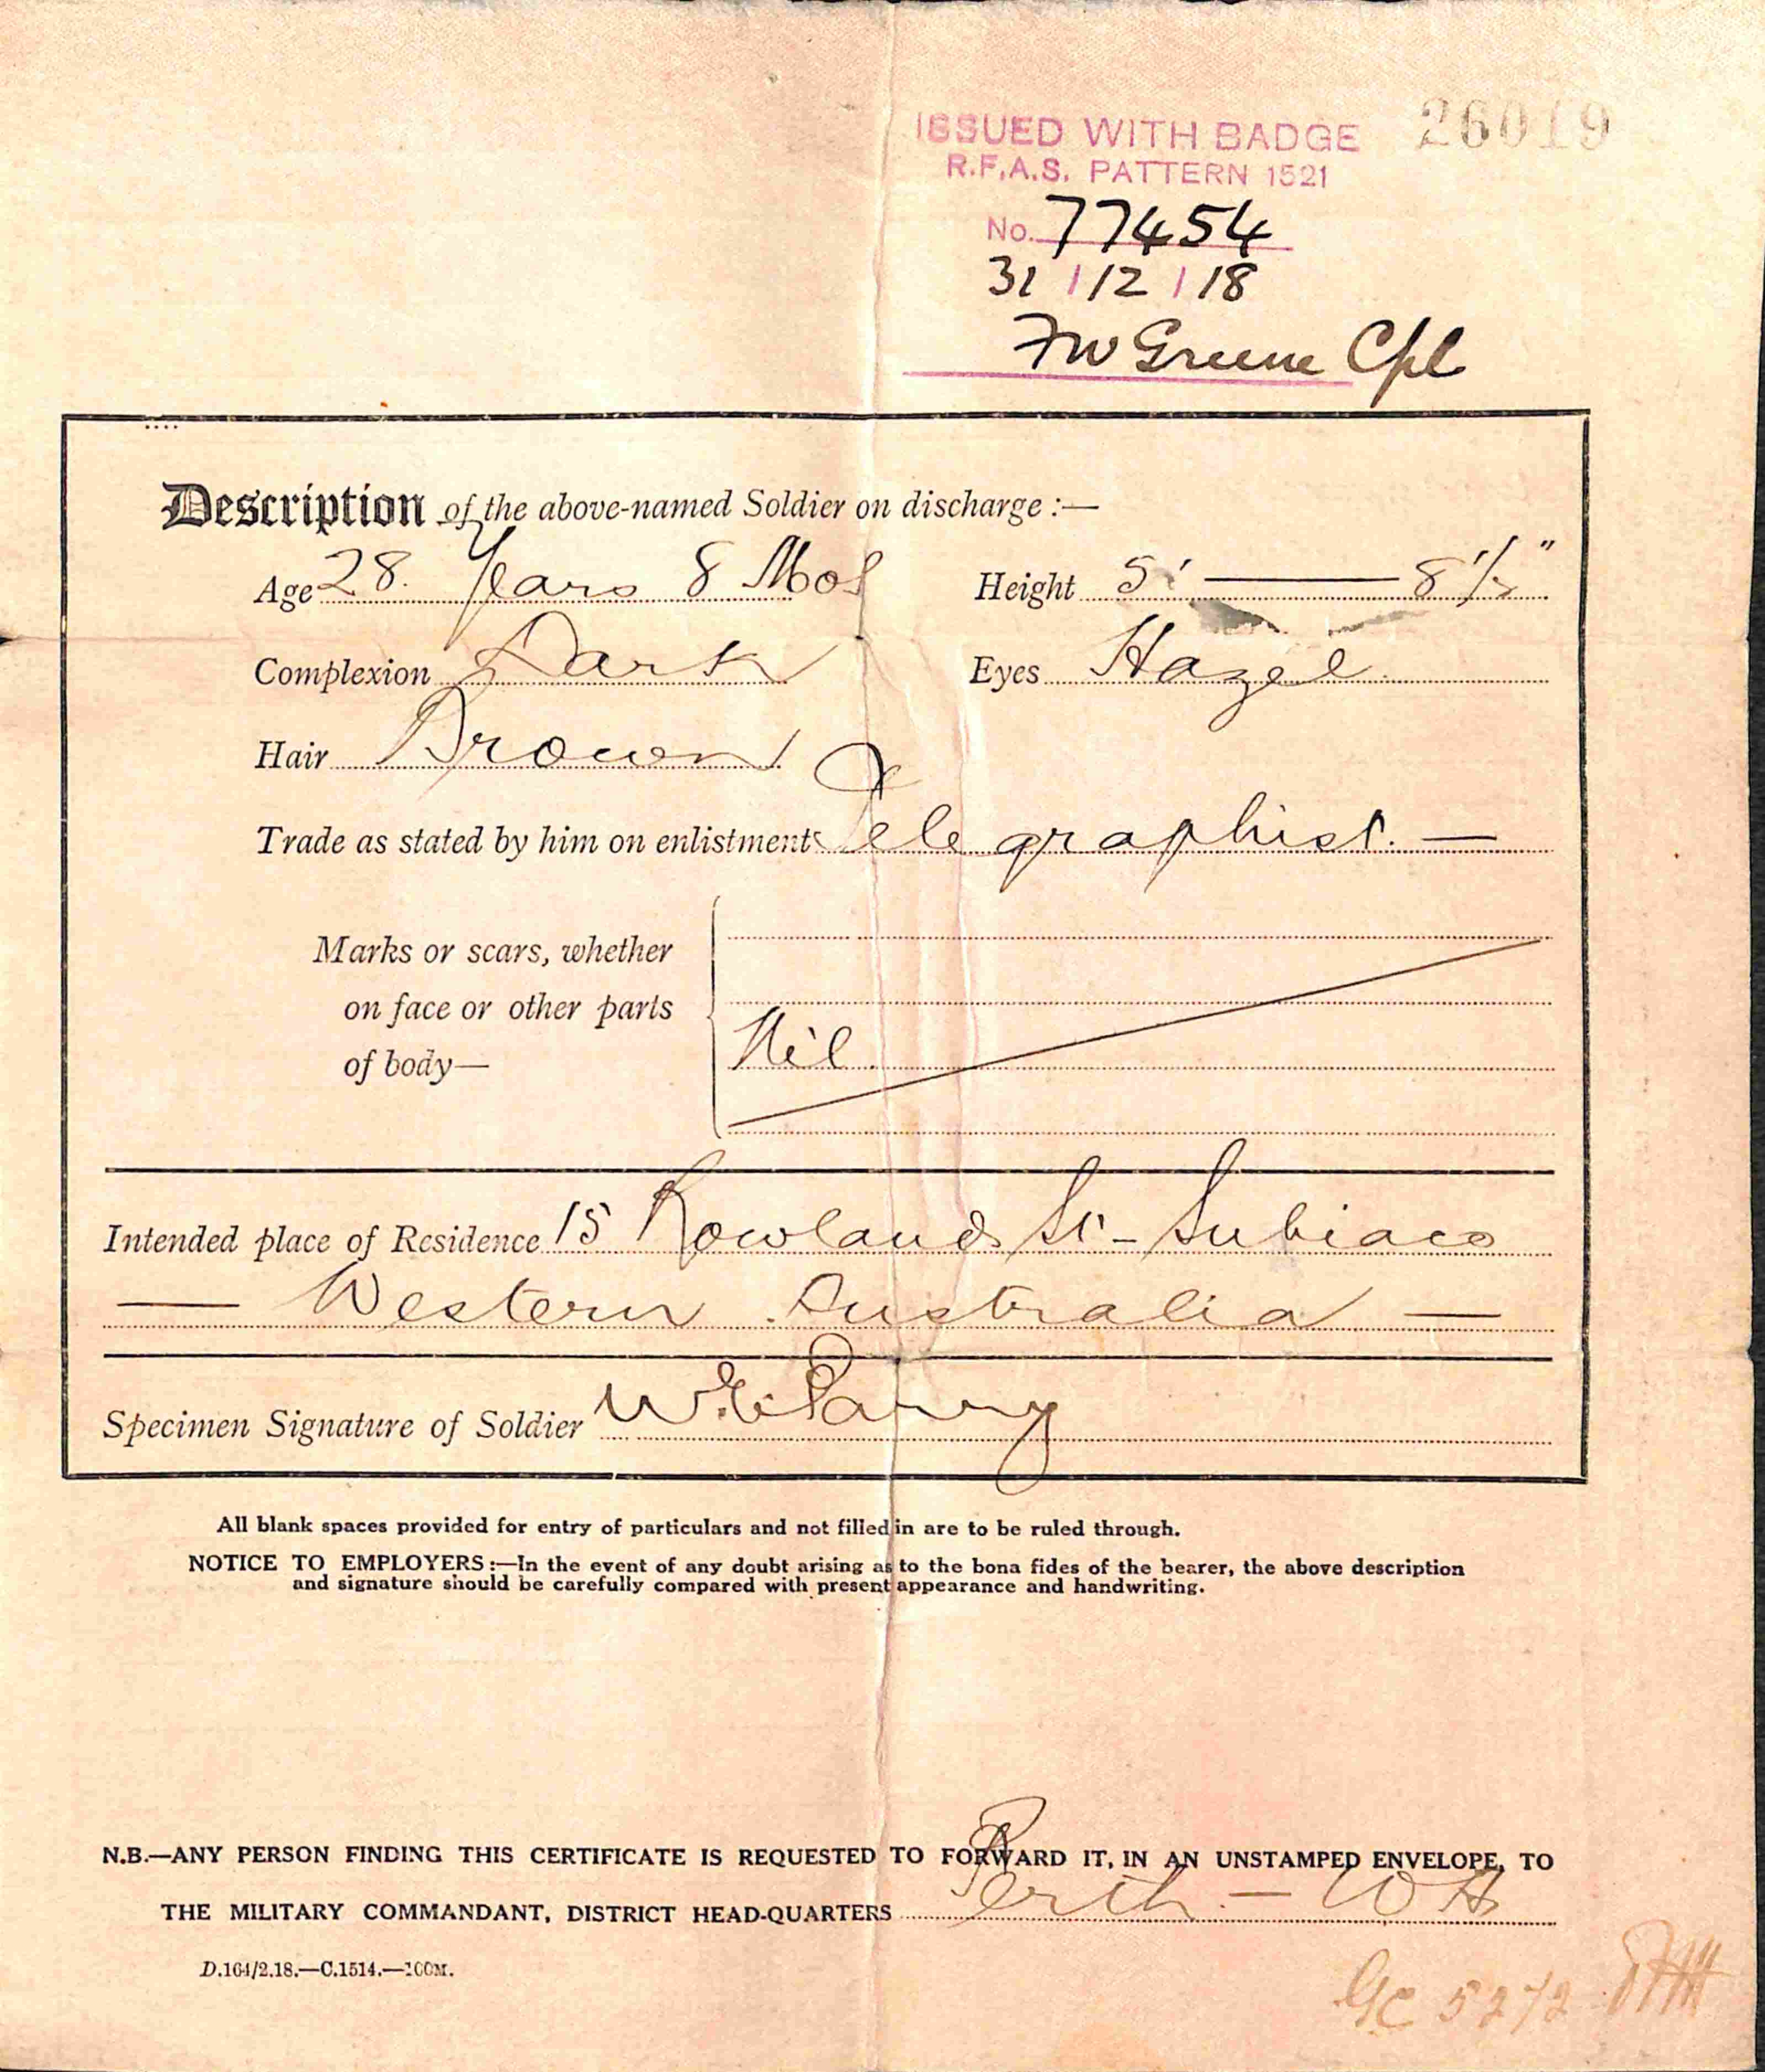 ISSUED WITH BADGE 26019
R.F.A.S. PATTERN 1521
No. 77454
31 / 12 / 18
FW Greene Cpl
Description of the above-named Soldier on discharge :—
Age 28. Years 8 Mos Height 5' — 8 1/2"
Complexion Dark Eyes Hazel
Hair Brown
Trade as stated by him on enlistment Telegraphist. —
Marks or scars, whether
on face or other parts
of body—
Nil
Intended place of Residence 15 Rowland St - Subiaco
— Western Australia —
Specimen Signature of Soldier W.E. Parry
All blank spaces provided for entry of particulars and not filled in are to be ruled through.
NOTICE TO EMPLOYERS :—In the event of any doubt arising as to the bona fides of the bearer, the above description
and signature should be carefully compared with present appearance and handwriting.
N.B.—ANY PERSON FINDING THIS CERTIFICATE IS REQUESTED TO FORWARD IT, IN AN UNSTAMPED ENVELOPE, TO
THE MILITARY COMMANDANT, DISTRICT HEAD-QUARTERS Perth - WA
D.164/2.18.—C.1514.—100M.
GC 5272